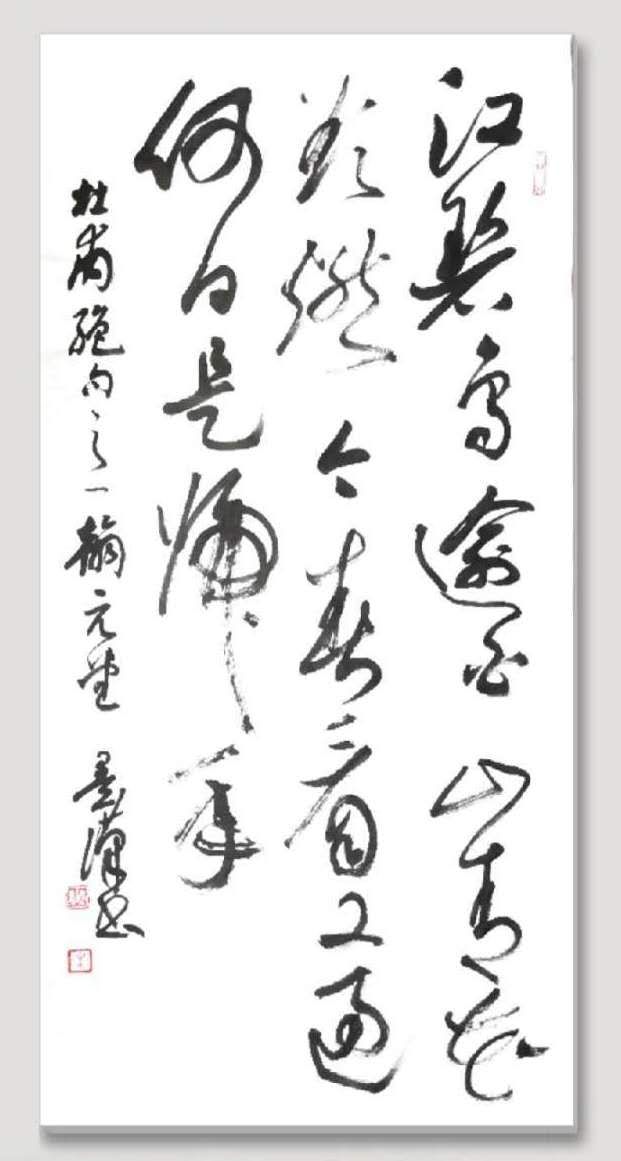 江碧鸟逾白山青花
欲燃今春看又过
何日是归年
杜甫绝句之一翰元堂
墨泽书